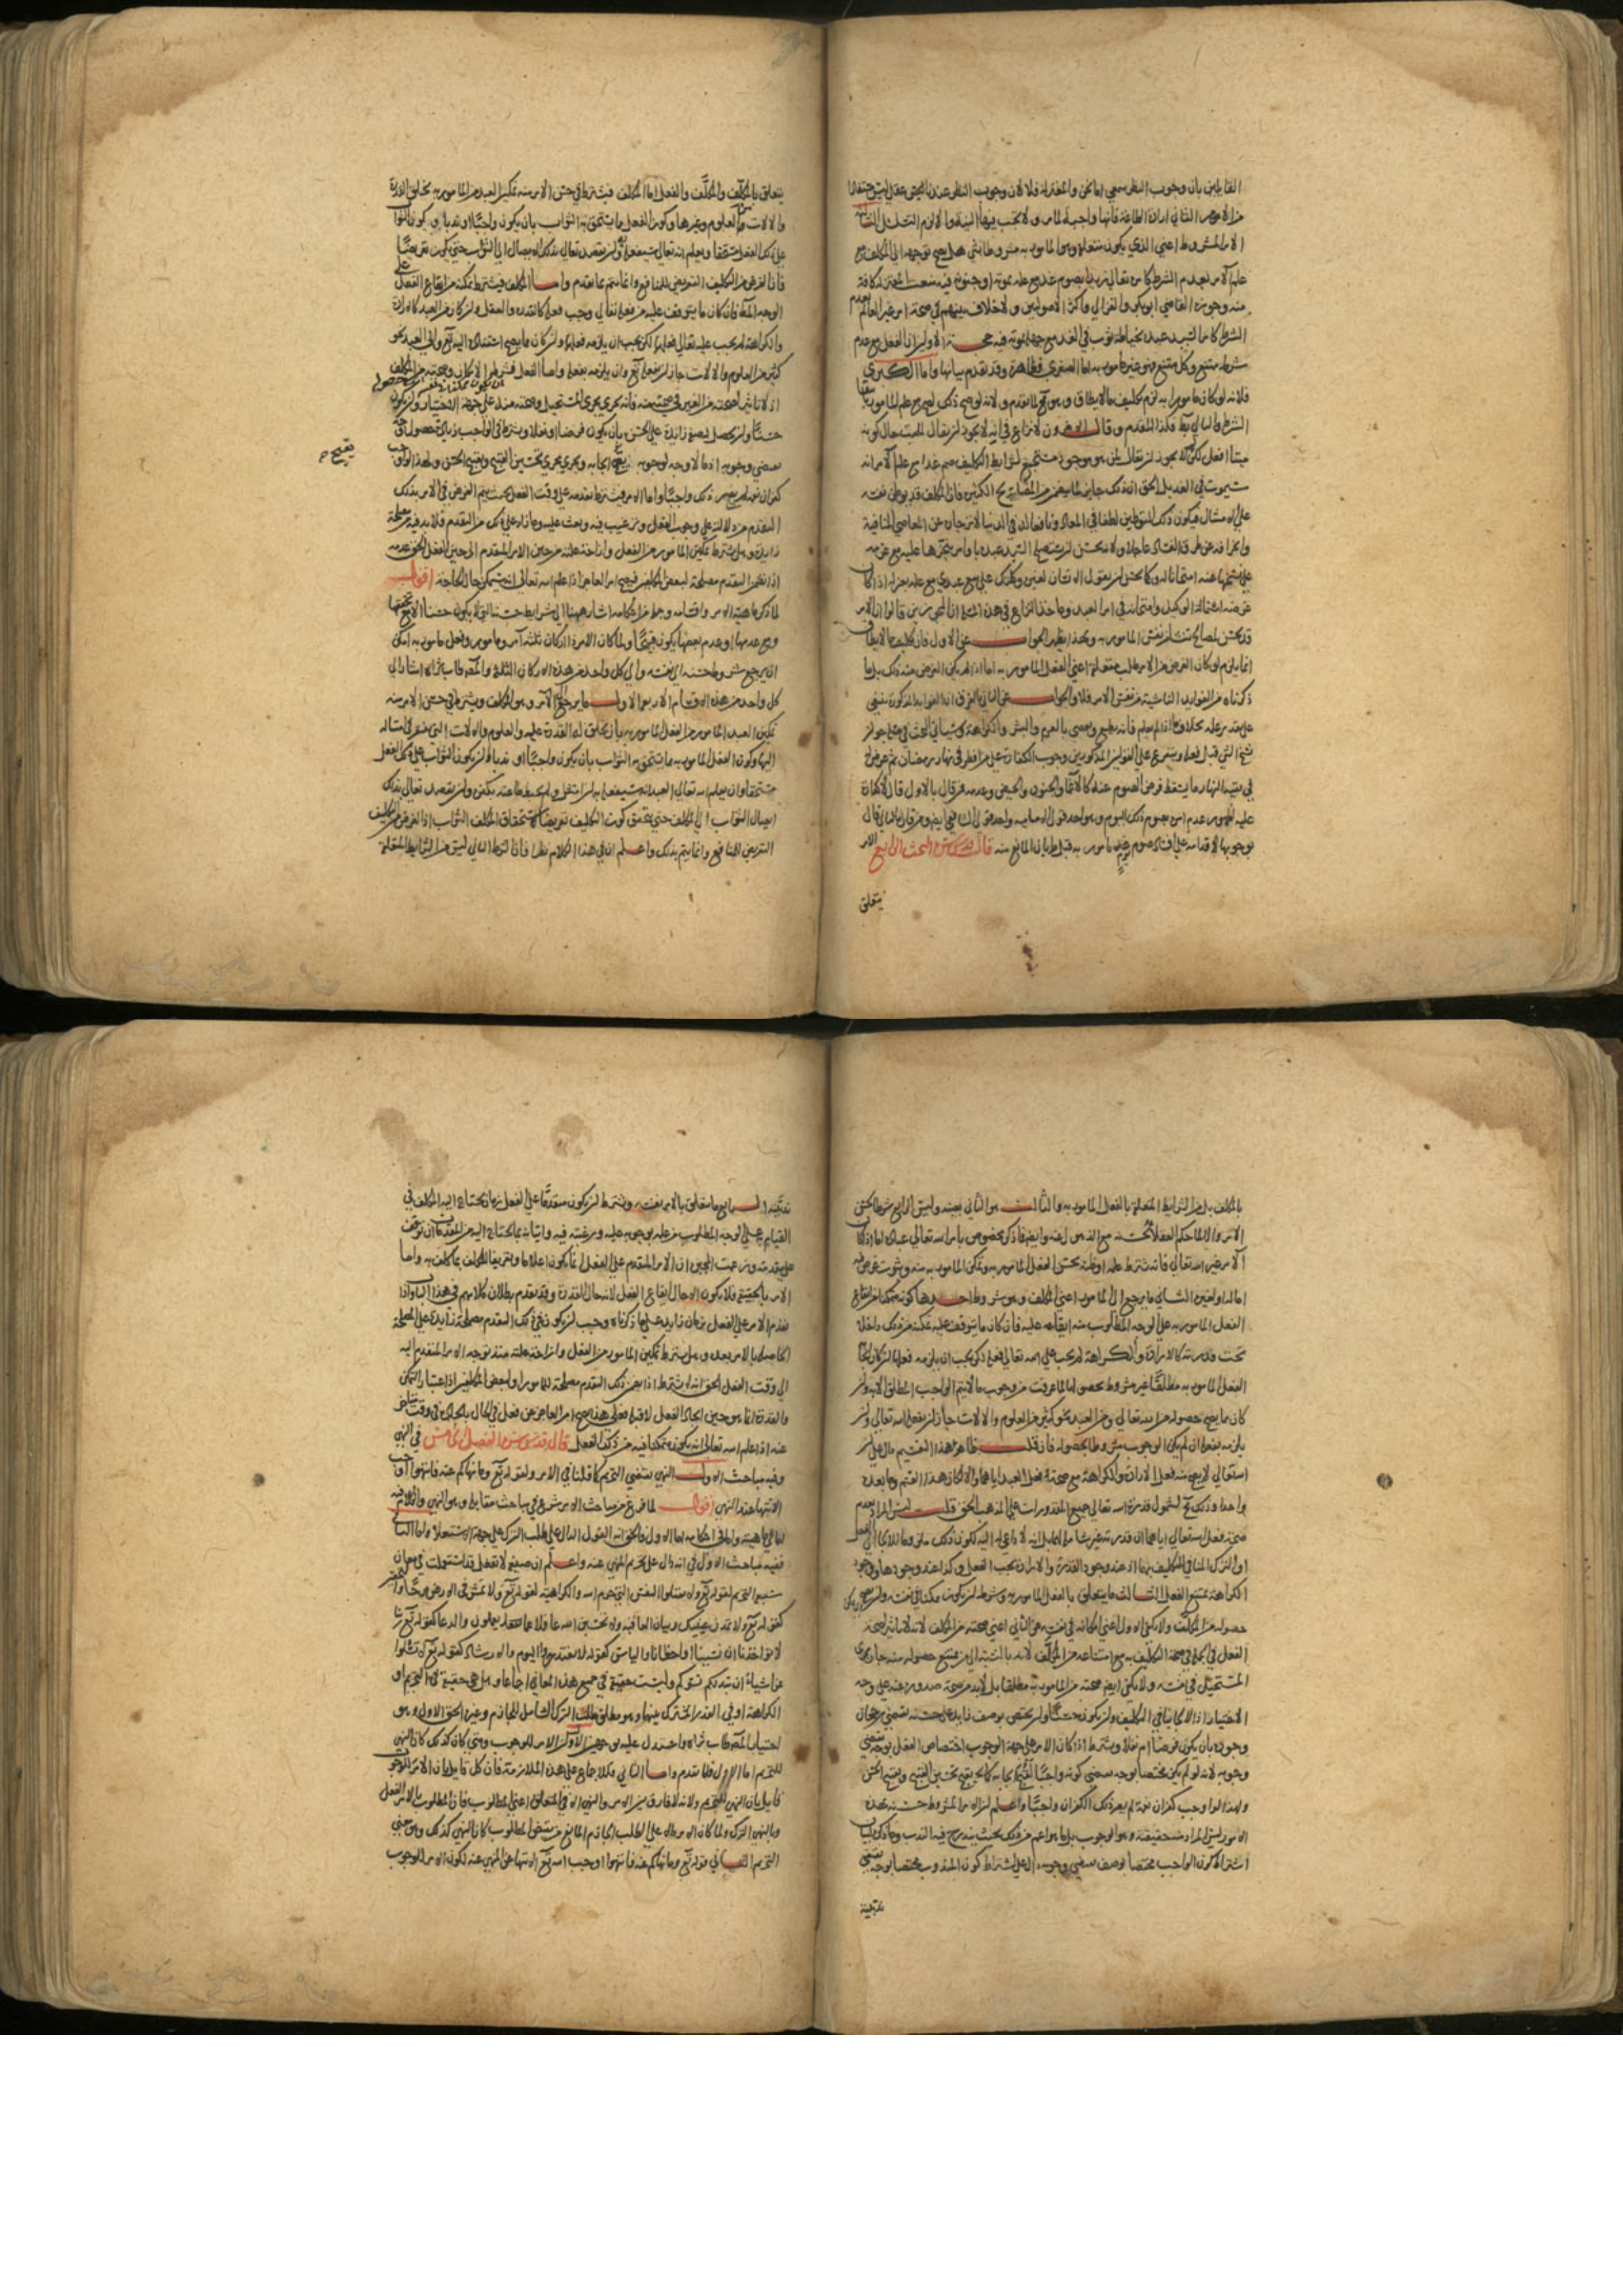 القايلين بان وجوب النظر سمعي اما نحن والمعتزلة فلا لان وجوب النظر عندنا عقلي ليس مستفادا
من الامر الثاني ارادة الطاعة فانها واجبة للامر ولا تجب فيها النية والا لزم التسلسل الثالث
الامر المشروط اعني الذي يكون متعلقه وهو المامور به مشروطا بشي هل يصح توجهه الى المكلف مع
علم الامر بعدم الشرط كامر تعالى زيدا بصوم غد مع علمه بموته او جنونه فيه منعت المعتزلة كافة
منه وجوزه القاضي ابو بكر والغزالي واكثر الاصوليين ولا خلاف بينهم في صحة امر غير العالم بعدم
الشرط كامر السيد عبده بخياطة ثوب في الغد مع جهله بموته فيه حجة الاولين ان الفعل مع عدم
شرطه ممتنع وكل ممتنع فهو غير مامور به اما الصغرى فظاهرة وقد تقدم بيانها واما الكبرى
فلانه لو كان مامورا به لزم تكليف ما لا يطاق وهو قبيح لما تقدم ولانه لو صح ذلك لصح مع علم المامور بانتفا
الشرط والتالي باطل فكذا المقدم وقال الاخرون لا نزاع في انه لا يجوز ان يقال للميت حال كونه
ميتا افعل لكن لا يجوز ان يقال لمن هو موجود مستجمع لشرايط التكليف صم غدا مع علم الامر انه
سيموت في الغد بل الحق ان ذلك جايز لما يتضمن من المصالح الكثيرة فان المكلف قد يوطن نفسه
على الامتثال فيكون ذلك التوطين لطفا في المعاد ونافعا له في الدنيا لانزجاره عن المعاصي المنافية
وانحرافه عن طرق الفساد عاجلا ولانه يحسن ان يستصلح السيد عبده باوامر ينجزها عليه مع عزمه
على نسخها عنه امتحانا له وكما يحسن ان يقول الانسان لغيره وكلتك على بيع عبدي مع علمه بعزله اذا كان
غرضه استمالة الوكيل وامتحانه في امر العبد وماخذ النزاع في هذه المسئلة ان المجوزين قالوا ان الامر
قد يحسن لمصالح تنشأ من نفس المامور به وبهذا يظهر الجواب عن الاول فان تكليف ما لا يطاق
انما يلزم لو كان الغرض من الامر طلب متعلقه اعني الفعل المامور به اما اذا لم يكن الغرض منه ذلك بل ما
ذكرناه من الفوايد الناشية من نفس الامر فلا والجواب عن الثاني الفرق اذ الفوايد المذكورة تنتفي
على تقدير علمه بخلاف ما اذا لم يعلم فانه يطيع ويعصي بالعزم والبشر والكراهة وسياتي البحث في مسئلة جواز
نسخ الشي قبل فعله ويتفرع على القولين المذكورين وجوب الكفارة على من افطر في نهار رمضان ثم عرض له
في بقية النهار ما يسقط فرض الصوم عنه كالاغما والجنون والحيض وعدمه فمن قال بالاول قال لا كفارة
عليه لظهور عدم امره بصوم ذلك اليوم وهو احد قولي الامامية واحد قولي الشافعي ايضا ومن قال بالثاني قال
بوجوبها لاقدامه على افساد صوم يوم مامور به قبل طريان المانع منه قال قدس سره البحث الرابع الامر
يتعلق
يتعلق بالمكلِّف والمكلَّف والفعل اما المكلف فيشترط في حسن الامر منه تمكين العبد من المامور به بخلق القدرة
والالات والعلوم وغيرها وكون الفعل مما يستحق به الثواب بان يكون واجبا او ندبا وان يكون الثواب
على ذلك الفعل مستحقا ويعلم انه تعالى سيفعله وان يقصد تعالى بذلك الايصال الى الثواب حتى يكون تعريضا
فان الغرض من التكليف التعريض للمنافع وانما يتم بما تقدم واما المكلف فيشترط تمكنه من ايقاع الفعل على
الوجه المامور فان كان ما يتوقف عليه من فعله تعالى وجب فعله كالقدرة والعقل وان كان من العبد كالارادة
والكراهة لم يجب عليه تعالى فعلها لكن يجب ان يلزمه فعلها وان كان مما يصح استناده اليه تعالى والى العبد نحو
كثير من العلوم والالات جاز ان يفعله تعالى وان يلزمه بفعله واما الفعل فشرطه الامكان وصحته من المكلف
ان يكون ممكنا في نفسه حصوله
اذ لا تاثير لصحته من الغير في صحته منه وانه يجري مجرى المستحيل وصحته منه على جهة الاختيار وان يكون
حسنا وان يحصل له صفة زايدة على الحسن بان يكون فرضا او نفلا ويشترط في الواجب زيادة حصول وجه
يقتضي وجوبه اذ ما لا وجه لوجوبه يقبح ايجابه ويجري مجرى تحسين القبيح وتقبيح الحسن ولهذا لو اوجب
يقبح م
كفران نعمة لم يصر ذلك واجبا واما الامر فيشترط تقدمه على وقت الفعل بحيث يتم الغرض في الامر بذلك
التقدم من دلالته على وجوب الفعل وترغيب فيه وبعث عليه وما زاد على ذلك من التقدم فلا بد فيه من مصلحة
زايدة وهل يشترط تمكين المامور من الفعل وازاحة علته من حين الامر المتقدم الى حين الفعل الحق عدمه
اذا تضمن التقدم مصلحة لبعض المكلفين فيصح امر العاجز اذا علم الله تعالى انه سيتمكن حال الحاجة اقول
لما ذكر ماهية الامر واقسامه وجملة من احكامه اشار هيهنا الى شرايط حسنه التي لا يكون حسنا الا مع تحققها
ومع عدمها او عدم بعضها يكون قبيحا ولما كان الامر له اركان ثلثة آمر ومامور وفعل مامور به امكن
ان يرجع شروط حسنه الى نفسه والى كل واحد من هذه الاركان الثلاثة والمصنف طاب ثراه اشار الى
كل واحد من هذه الاقسام الاربعة الاول ما يرجع الى الآمر وهو المكلف ويشترط في حسن الامر منه
تمكين العبد المامور من الفعل المامور به بان يخلق له القدرة عليه والعلوم والالات التي يفتقر في امتثاله
اليها وكون الفعل المامور به مما يستحق به الثواب بان يكون واجبا او ندبا وان يكون الثواب على ذلك الفعل
مستحقا وان يعلم الله تعالى ان العبد انه سيفعله به ان امتثل ولم يحبط طاعته بكفر وان يقصد تعالى بذلك
ايصال الثواب الى المكلف حتى يتحقق كون التكليف تعريضا لاستحقاق المكلف الثواب اذ الغرض من التكليف
التعريض للمنافع وانما يتم بذلك واعلم ان في هذا الكلام نظرا فان الشرط الثاني ليس من الشرايط المتعلقة
بالمكلف بل من الشرايط المتعلقة بالفعل المامور به والثالث هو الثاني بعينه وليس الرابع شرطا لحسن
الامر والا لما حكم العقلا بحسنه مع الذهول عنه وايضا فما ذكره مخصوص باوامر الله تعالى عباده اما اذا كان
الآمر غير الله تعالى فانه يشترط علمه او ظنه بحسن الفعل المامور به وتمكن المامور به منه وثبوت غرض فيه
اما له او لغيره الثاني ما يرجع الى المامور اعني المكلف وهو شروط احدها كونه متمكنا من ايقاع
الفعل المامور به على الوجه المطلوب منه ايقاعه عليه فان كان ما يتوقف عليه تمكنه من ذلك داخلا
تحت قدرته كالارادة والكراهة لم يجب على الله تعالى فعل ذلك ويجب ان يلزمه فعلها ان كان ايجاب
الفعل المامور به مطلقا غير مشروط بحصولها لما عرفت من وجوب ما لا يتم الواجب المطلق الا به وان
كان مما يصح حصوله من الله تعالى ومن العبد نحو كثير من العلوم والالات جاز ان يفعله الله تعالى وان
يلزمه بفعله ان لم يكن الوجوب مشروطا بحصوله فان قلت ظاهر هذا التقسيم دال على ان
الله تعالى لا يصح منه فعل الارادة والكراهة مع صحة فعل العبد اياهما والا لكان هذا القسم وما بعده
واحدا وذلك قبيح لشمول قدرة الله تعالى جميع المقدورات على المذهب الحق قلت ليس المراد عدم
صحة فعل الله تعالى اياهما ان قدرته غير شاملة لهما بل انه لا داعي له اليه لكون ذلك منافيا للايجاب الفعل
او الترك المنافي للتكليف بهما اذ عند وجود القدرة والارادة يجب الفعل وكذا عند وجودها ووجود
الكراهة يمتنع الفعل الثالث ما يتعلق بالفعل المامور به وشرطه ان يكون ممكنا في نفسه وان يصح
حصوله من المكلف ولا يكفي الاول اعني امكانه في نفسه عن الثاني اعني صحته من المكلف لانه لا تاثير لصحة
الفعل في الجملة في صحة التكليف به مع امتناعه من المكلف لانه بالنسبة الى من يمتنع حصوله منه جار مجرى
المستحيل في نفسه ولا يكفي ايضا صحته من المامور به مطلقا بل لا بد من صحة صدوره عنه على وجه
الاختيار اذ الالجا ينافي التكليف وان يكون حسنا وان يختص بوصف زايد على حسنه يقتضي رجحان
وجوده بان يكون فرضا او نفلا ويشترط اذا كان الامر على جهة الوجوب اختصاص الفعل بوجه يقتضي
وجوبه لانه لو لم يكن مختصا بوجه يقتضي كونه واجبا لقبح ايجابه كما يقبح تحسين القبيح وتقبيح الحسن
ولهذا لو اوجب كفران نعمة لم يصر ذلك الكفران واجبا واعلم ان الامر المشروط حسنه بهذه
الامور ليس المراد منه حقيقته وهو الوجوب بل ما هو اعم من ذلك بحيث يندرج فيه الندب وما ذكره لبيان
اشتراط كون الواجب مختصا بوصف يقتضي وجوبه دال على اشتراط كون المندوب مختصا بوجه يقتضي
ندبيته
ندبيته الرابع ما يتعلق بالامر نفسه ويشترط ان يكون متقدما على الفعل زمانا يحتاج اليه المكلف في
القيام به على الوجه المطلوب من علمه بوجوبه عليه ورغبته فيه واتيانه بما يحتاج اليه من المقدمات ان توقف
على مقدمة وزعمت المجبرة ان الامر المتقدم على الفعل انما يكون اعلاما وتعريفا للمكلف بما كلف به واما
الامر بالحقيقة فلا يكون الا حال ايقاع الفعل لانه حال القدرة وقد تقدم بطلان كلامهم في هذا الباب واذا
تقدم الامر على الفعل بزمان زايد على ما ذكرناه وجب ان يكون في ذلك التقدم مصلحة زايدة على المصلحة
الحاصلة بالامر بعده وهل يشترط تمكين المامور من الفعل وازاحة علته منذ توجه الامر المتقدم اليه
الى وقت الفعل الحق انه لا يشترط اذا تضمن ذلك التقدم مصلحة للمامور او لبعض المكلفين اذ اعتبار التمكن
والقدرة انما هو حين ايجاد الفعل لا قبله فعلى هذا يصح امر العاجز عن فعل في الحال بايجاده في وقت متاخر
عنه اذا علم الله تعالى انه يكون متمكنا فيه من ذلك الفعل قال قدس سره الفصل الخامس في النهي
وفيه مباحث الاول النهي يقتضي التحريم كما قلنا في الامر ولقوله تعالى وما نهاكم عنه فانتهوا اوجب
الانتها عند النهي اقول لما فرغ من مباحث الامر شرع في مباحث مقابله وهو النهي والكلام فيه
اما في ماهيته واما في احكامه اما الاول فالحق انه القول الدال على طلب الترك على جهة الاستعلا واما الثاني
ففيه مباحث الاول في انه دال على تحريم المنهي عنه واعلم ان صيغة لا تفعل قد استعملت في معان
سبعة التحريم كقوله تعالى ولا تقتلوا النفس التي حرم الله والكراهية كقوله تعالى ولا تمش في الارض مرحا والتحقير
كقوله تعالى ولا تمدن عينيك وبيان العاقبة ولا تحسبن الله غافلا عما تعملون والدعا كقوله تعالى ربنا
لا تؤاخذنا ان نسينا او اخطانا والياس كقوله لا تعتذروا اليوم والارشاد كقوله تعالى لا تسئلوا
عن اشياء ان تبد لكم تسؤكم وليست حقيقة في جميع هذه المعاني اجماعا وهل هي حقيقة في التحريم او
الكراهة او في القدر المشترك بينهما وهو مطلق طلب الترك الشامل للجازم وغيره الحق الاول وهو
اختيار المصنف طاب ثراه واستدل عليه بوجهين الاول ان الامر للوجوب ومتى كان كذلك كان النهي
للتحريم اما الاول فلما تقدم واما الثاني فللاجماع على هذه الملازمة فان كل قايل بان الامر للوجوب
قايل بان النهي للتحريم ولانه لا فارق بين الامر والنهي الا في المتعلق اعني المطلوب فان المطلوب بالامر الفعل
وبالنهي الترك ولما كان الامر دالا على الطلب الجازم المانع من نقيض المطلوب كان النهي كذلك وهو معنى
التحريم الثاني قوله تعالى وما نهاكم عنه فانتهوا اوجب الله تعالى الانتها عن المنهي عنه لكون الامر للوجوب